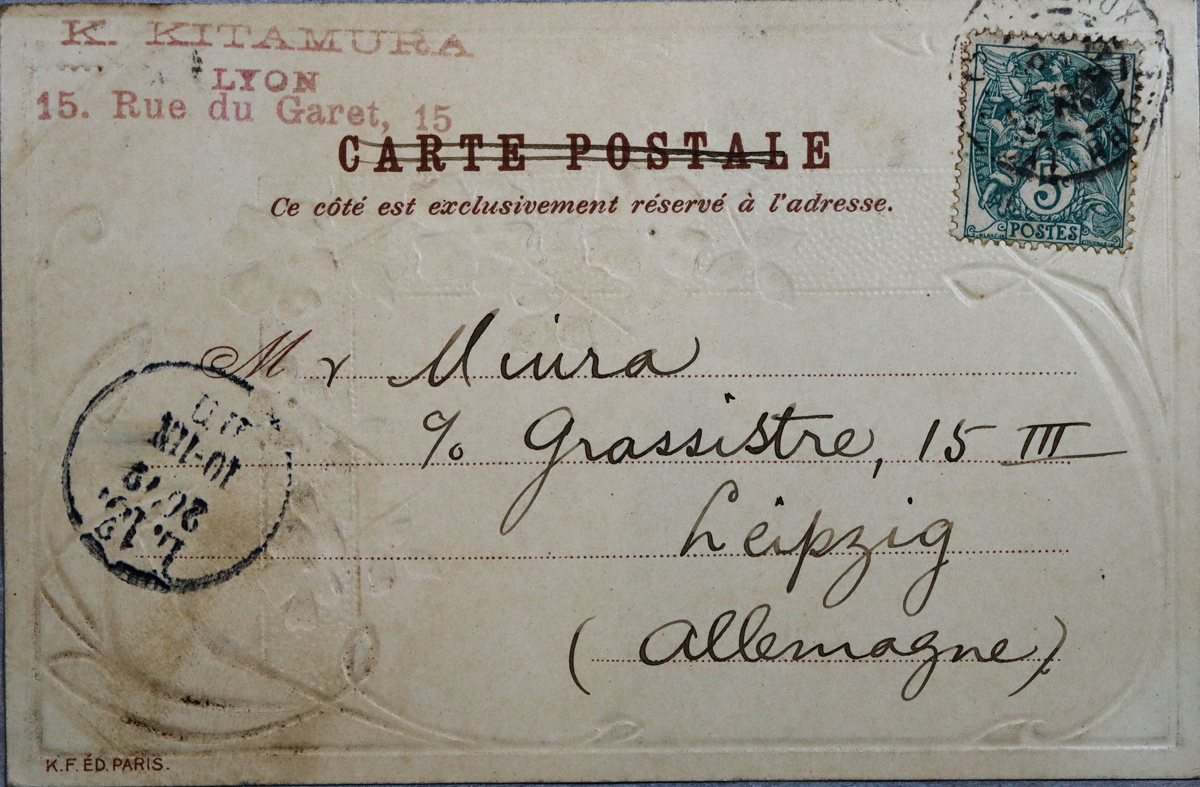 K. KITAMURA
LYON
15. Rue du Garet, 15
CARTE POSTALE
Ce côté est exclusivement réservé à l'adresse.
5
POSTES
Mr Miura
% Grassistre, 15 III
Leipzig
(Allemagne)
L. 13.
20 12
10-11N
K.F. ÉD. PARIS.